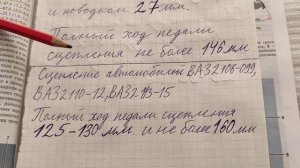 и поводком 27 мм.
Полный ход педали
сцепления не более 146 мм
Сцепление автомобилей ВАЗ 2108-099,
ВАЗ 2110-12, ВАЗ 2113-15
Полный ход педали сцепления
125-130 мм и не более 160 мм